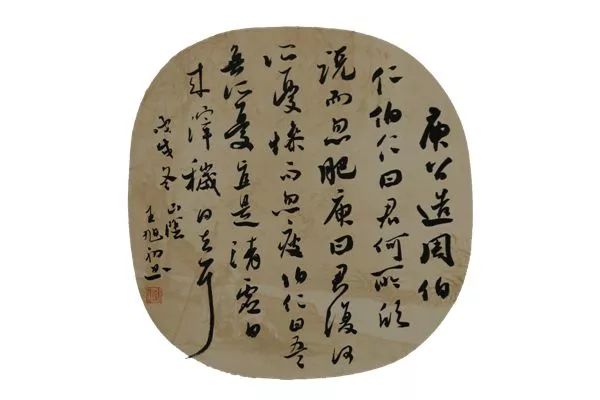 庾公造周伯
仁伯仁曰君何所欣
説而忽肥庾曰君復何
所憂慘而忽瘦伯仁曰吾
無所憂直是清虛日
来滓穢日去耳
戊戌冬山陰
王旭初书